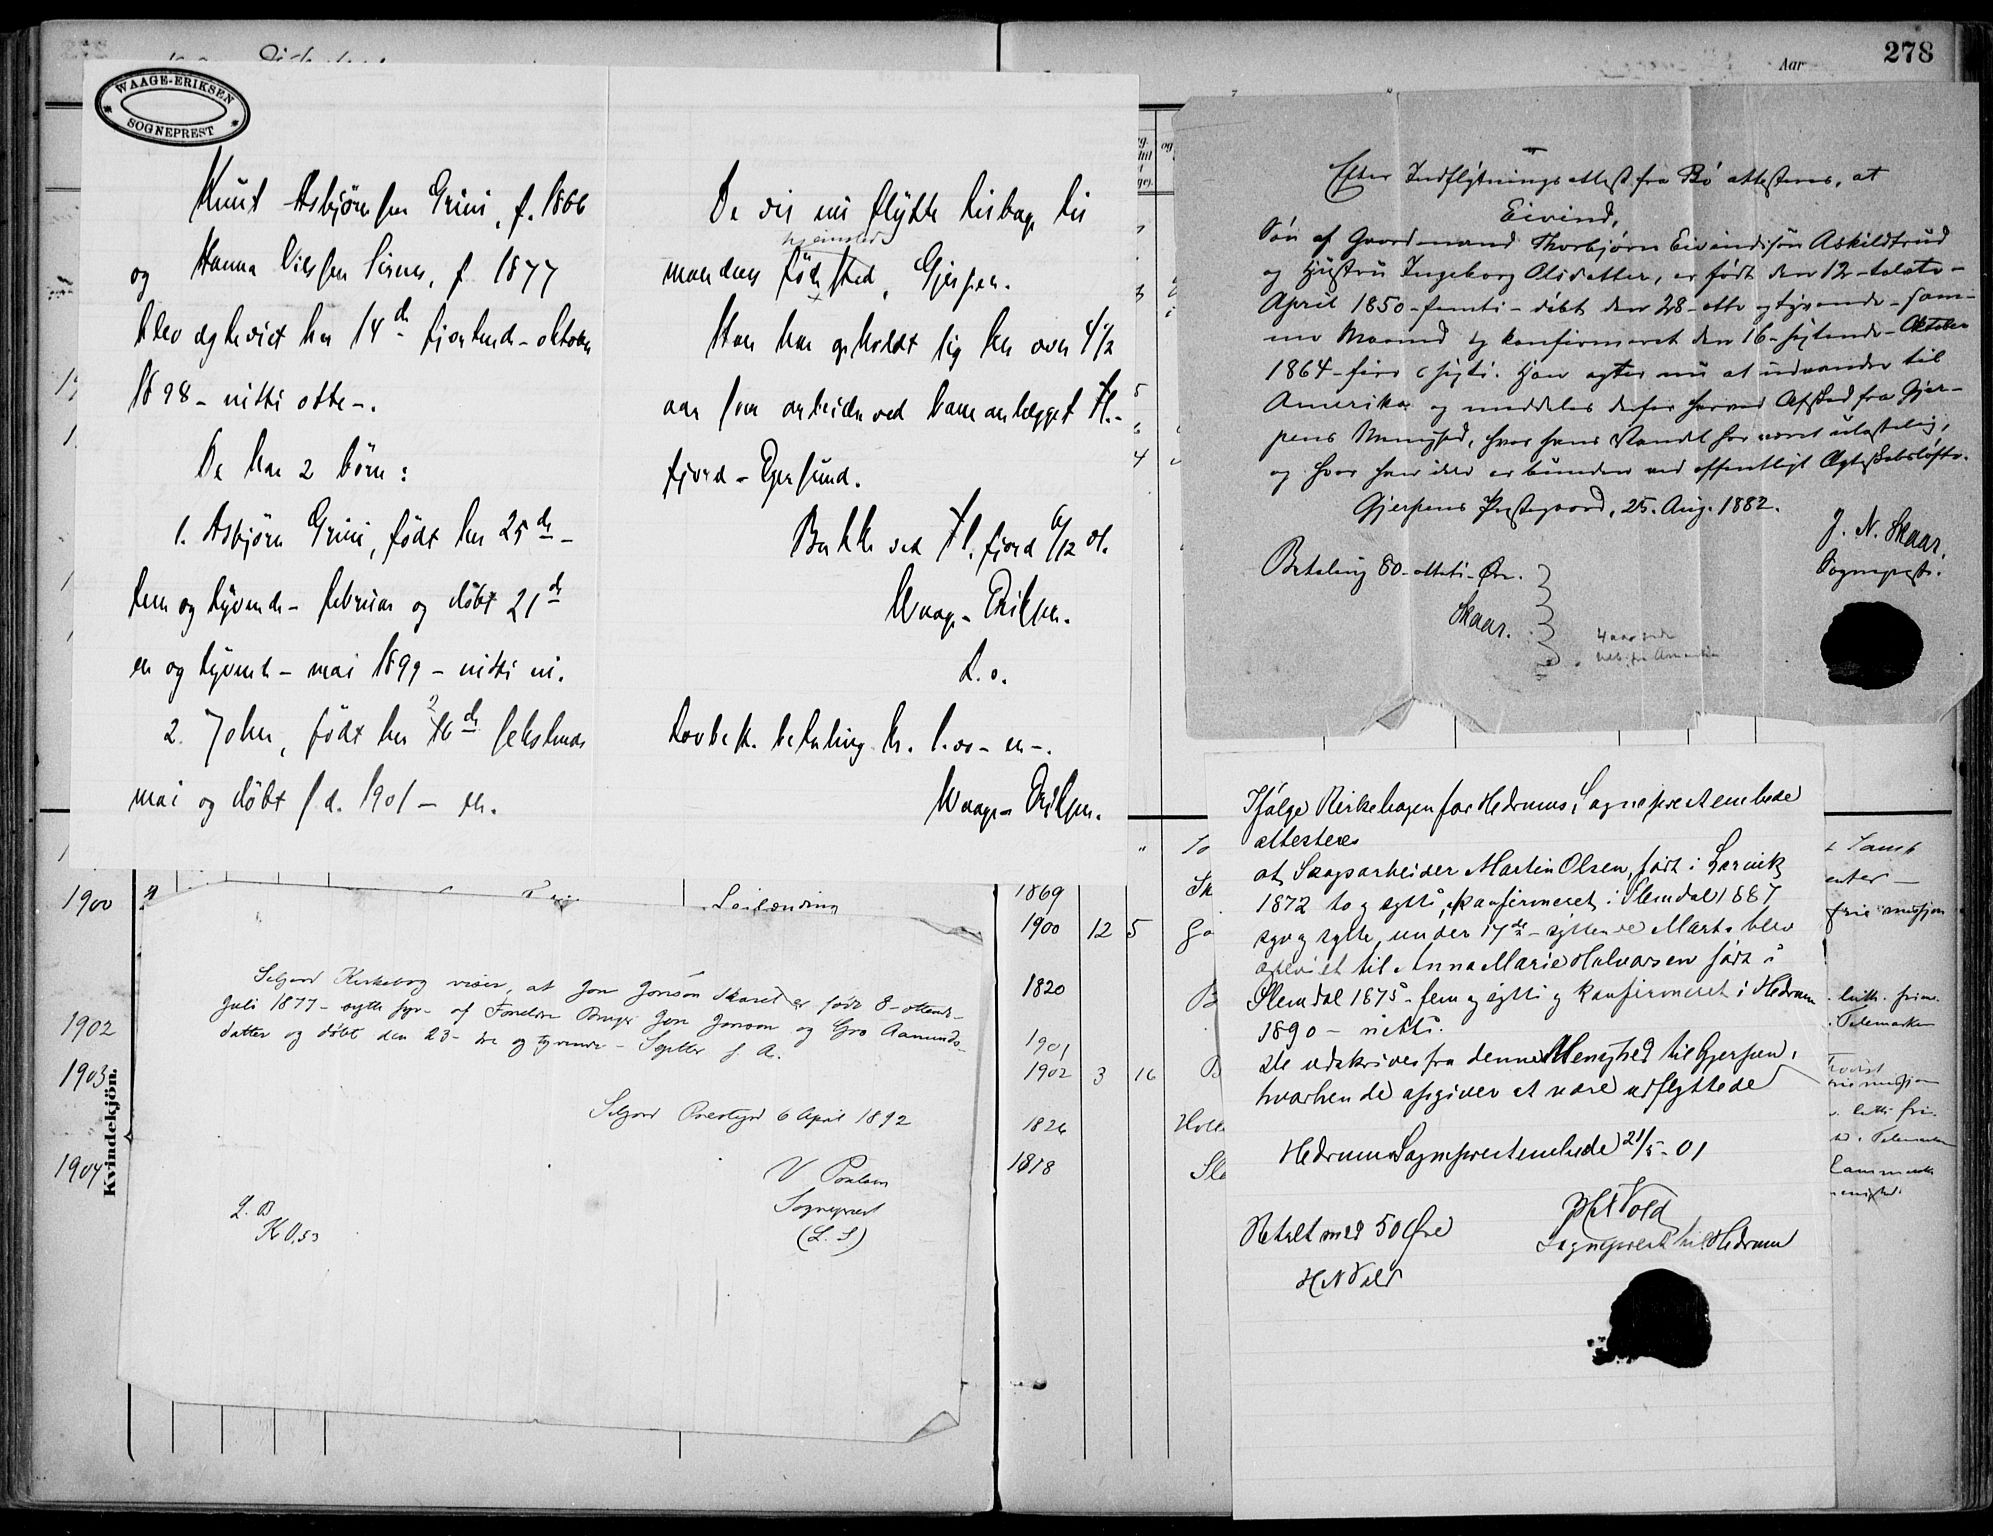 278
Aar
WAAGE-ERIKSEN
SOGNEPREST
Knut Asbjørnsen Grini, f. 1866
og Hanna Nilssen Sirnes, f. 1877
blev egteviet her 14de fjortende - oktober
1898 - nitti otte -.
De har 2 børn:
1. Asbjørn Grini, født her 25de -
fem og tyvende - februar og døbt 21de
en og tyvende - mai 1899 - nitti ni.
2. John, født her 16de sekstende
mai og døbt s. d. 1901 - en.
De vil nu flytte tilbage til
hjemsted
mandens fødested, Gjerpen.
Han har opholdt sig her over 4½
aar som arbeider ved baneanlægget Fl.-
fjord - Egersund.
Bakke ved Fl.fjord 6/12 01.
Waage-Eriksen.
Lovbest. betaling kr. 1.00 - en -.
Waage-Eriksen.
Efter Indflytningsattest fra Bø attesteres, at
Eivind,
Søn af Gaardmand Thorbjørn Eivindssøn Askildtrud
og Hustru Ingeborg Olsdatter, er født den 12 - tolvte -
April 1850 - femti - døbt den 28 - otte og tyvende - sam-
me Maaned og konfirmeret den 16 - sextende - Oktober
1864 - fire & sexti. Han agter nu at udvandre til
Amerika og meddeles derfor herved Afsked fra Gjer-
pens Menighed, hvor hans Vandel har været ulastelig,
og hvor han ikke er bunden ved offentligt Ægteskabsløfte.
Gjerpens Prestegaard, 25. Aug. 1882.
J. N. Skaar.
Sogneprest.
Betaling 80 - otteti - Øre.
Skaar.
4 aar siden
tilb. fra Amerika
Ifølge Kirkebogen for Hedrums Sogneprestembede
attesteres
at Skogsarbeider Martin Olsen, født i Larvik
1872 to og sytti, konfirmeret i Slemdal 1887
syv og otti, under 17de - syttende Marts blev
egteviet til Anna Marie Halvorsen født i
Slemdal 1875 - fem og sytti og konfirmeret i Hedrum
1890 - nitti.
De udskrives fra denne Menighed til Gjerpen,
hvorhen de opgiver at være udflyttede
Hedrums Sogneprestembede 21/5 - 01
H N Vold
Sogneprest til Hedrum
Betalt med 50 Øre
H N Vold
Seljord Kirkebog viser, at Jon Jonson Skaret er født 8 - ottende -
Juli 1877 - sytti syv - af Foreldre Bruger Jon Jonson og Gro Aamunds-
datter og døbt den 23 - tre og tyvende - Septbr s. A.
Seljord Prestegd 6 April 1892
V Poulsen
Sogneprest
(L. S)
L. B
K 0,53
1900
1902
1903
1904
Kvindekjön.
1869
1900 12 5
1820
1901
1902 3 16
1826
1818
Holl